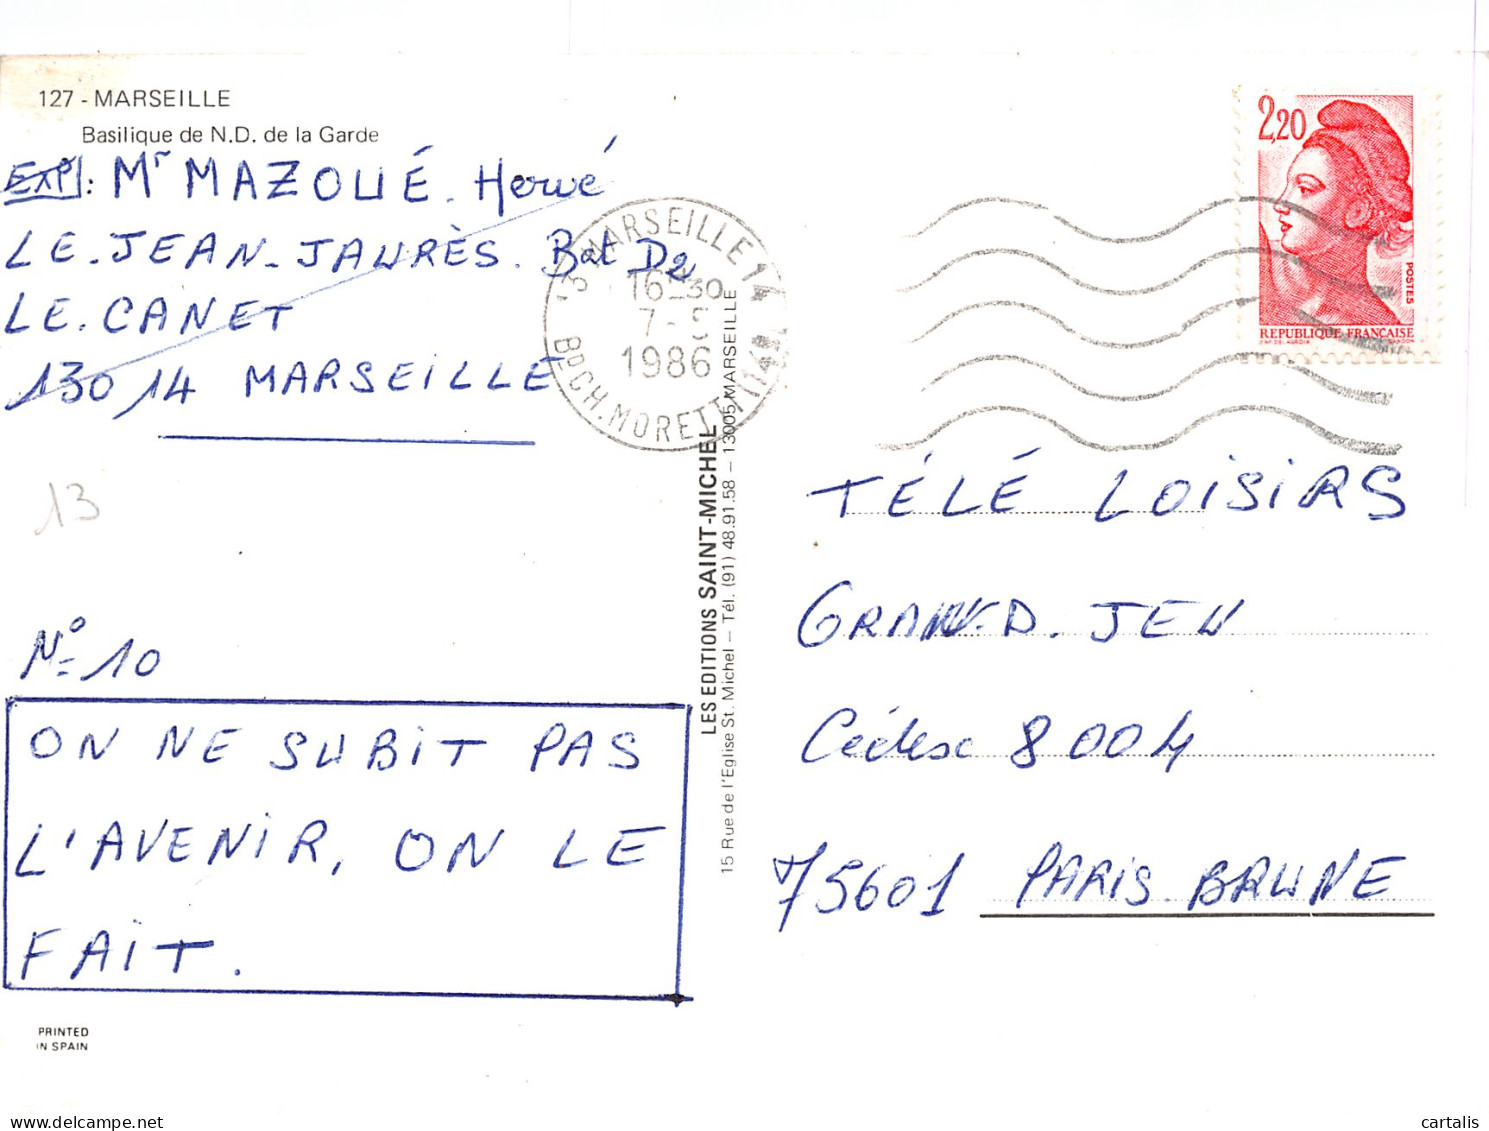 127 - MARSEILLE
Basilique de N.D. de la Garde
EXP: Mr MAZOUÉ. Hervé
LE. JEAN-JAURÈS. Bat D2
LE. CANET
13014 MARSEILLE
13
N° 10
ON NE SUBIT PAS
L'AVENIR, ON LE
FAIT.
PRINTED
IN SPAIN
LES EDITIONS SAINT-MICHEL
15 Rue de l'Eglise St. Michel – Tél. (91) 48.91.58 – 13005 MARSEILLE
13 MARSEILLE 14
16 H 30
7 -
1986
BD CH. MORETTI (14E)
2,20
POSTES
REPUBLIQUE FRANÇAISE
TÉLÉ LOISIRS
GRAND. JEU
Cédex 8004
75601 PARIS. BRUNE
cartalis.com
cartalis